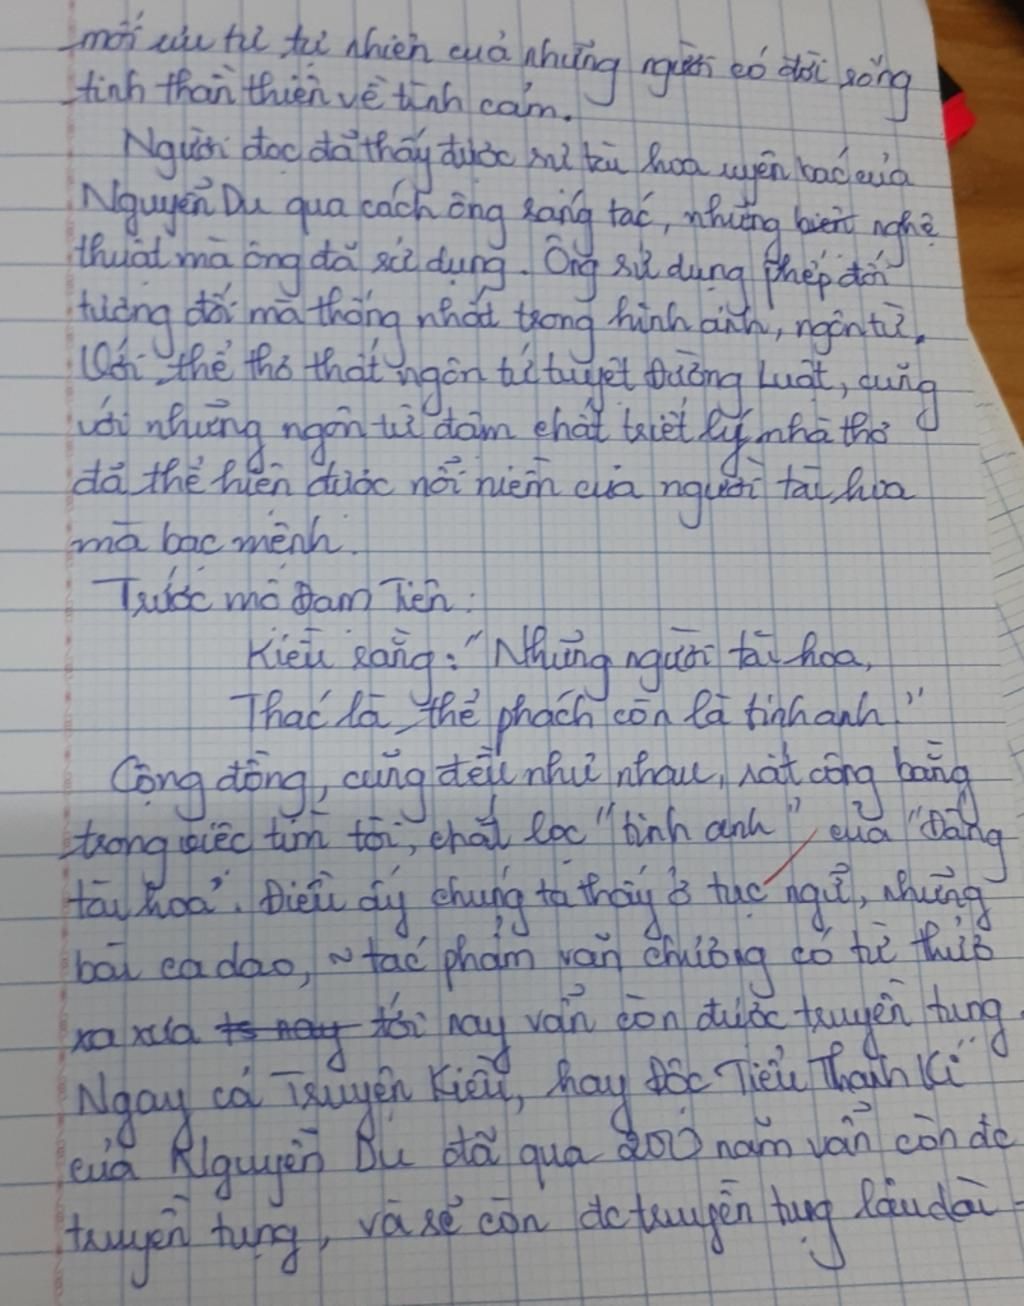 mối ưu tư tự nhiên của những người có đời sống
tinh thần thiên về tình cảm.
Người đọc đã thấy được sự tài hoa uyên bác của
Nguyễn Du qua cách ông sáng tác, những biện nghệ
thuật mà ông đã sử dụng. Ông sử dụng phép đối
tương đối mà thống nhất trong hình ảnh, ngôn từ.
Với thể thơ thất ngôn tứ tuyệt Đường Luật, cùng
với những ngôn từ đậm chất triết lý nhà thơ
đã thể hiện được nỗi niềm của người tài hoa
mà bạc mệnh.
Trước mộ Đạm Tiên:
Kiều rằng: "Những người tài hoa,
Thác là thể phách còn là tinh anh"
Cộng đồng, cũng đều như nhau, rất công bằng
trong việc tìm tòi, chắt lọc "tinh anh" của "Đấng
tài hoa". Điều ấy chúng ta thấy ở tục ngữ, những
bài ca dao, ~ tác phẩm văn chương có từ thuở
xa xưa ts nay tới nay vẫn còn được truyền tụng.
Ngay cả Truyện Kiều, hay Độc Tiểu Thanh Kí
của Nguyễn Du đã qua 200 năm vẫn còn đc
truyền tụng, và sẽ còn đc truyền tụng lâu dài